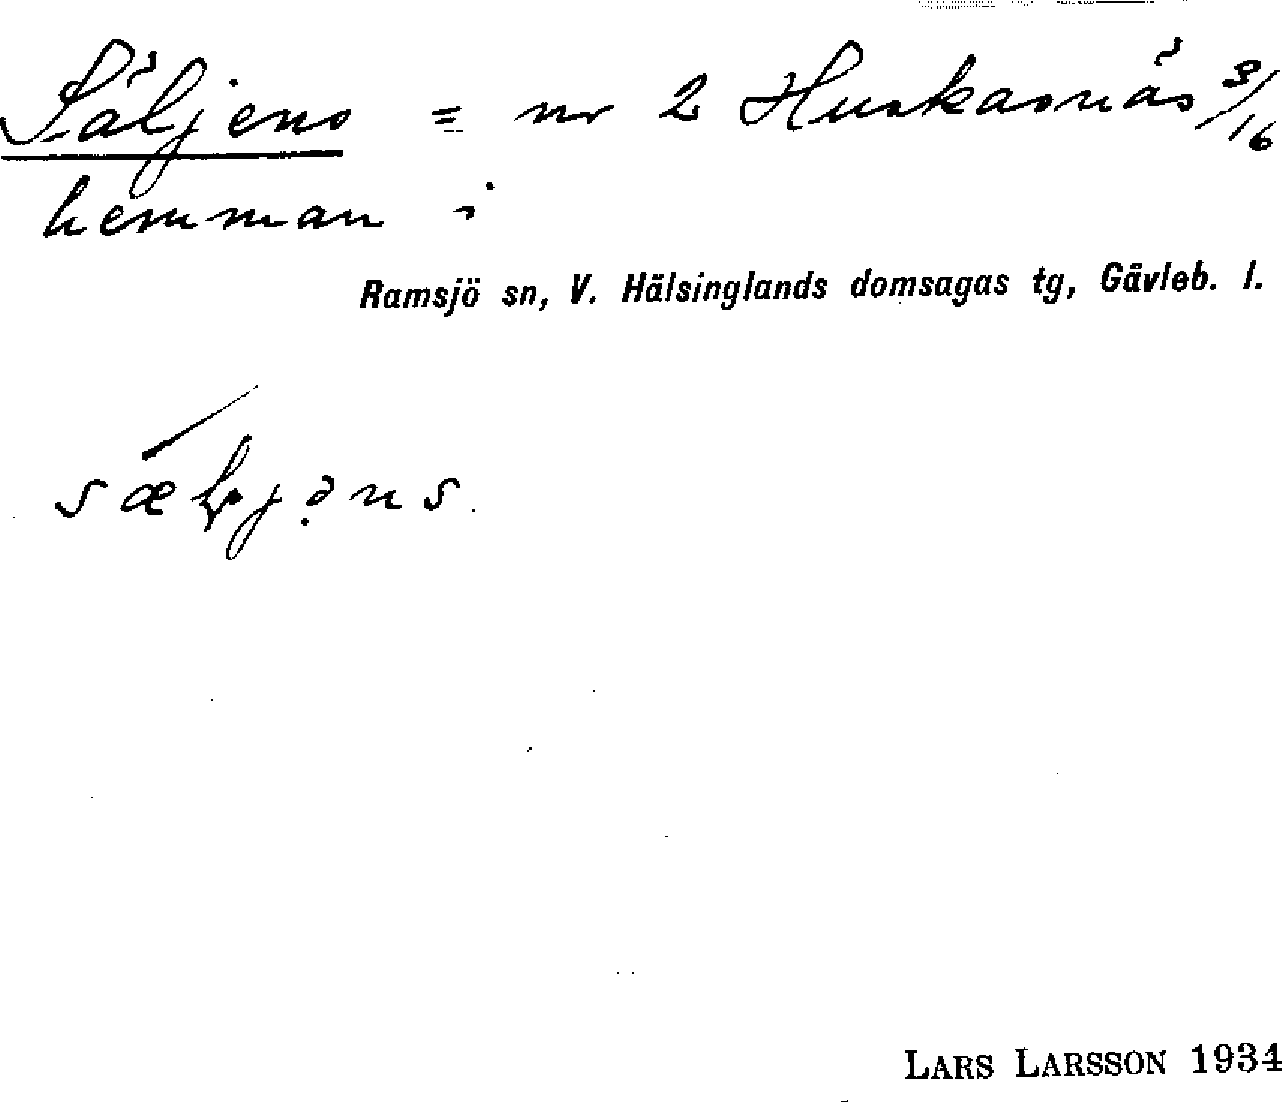 Säljens = nr 2 Huskasnäs 3/16
hemman i
Ramsjö sn, V. Hälsinglands domsagas tg, Gävleb. l.
LARS LARSSON 1934